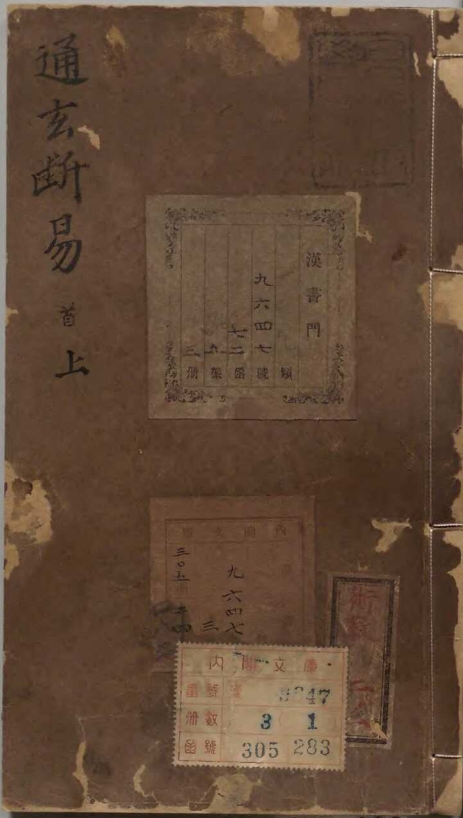 通玄断易 首 上
漢書門
類
九六四七 號
七二 函
五 架
三 冊
九六四七
三
三〇五
術
內閣文庫
番號 漢 9647
冊數 3 1
函號 305 283